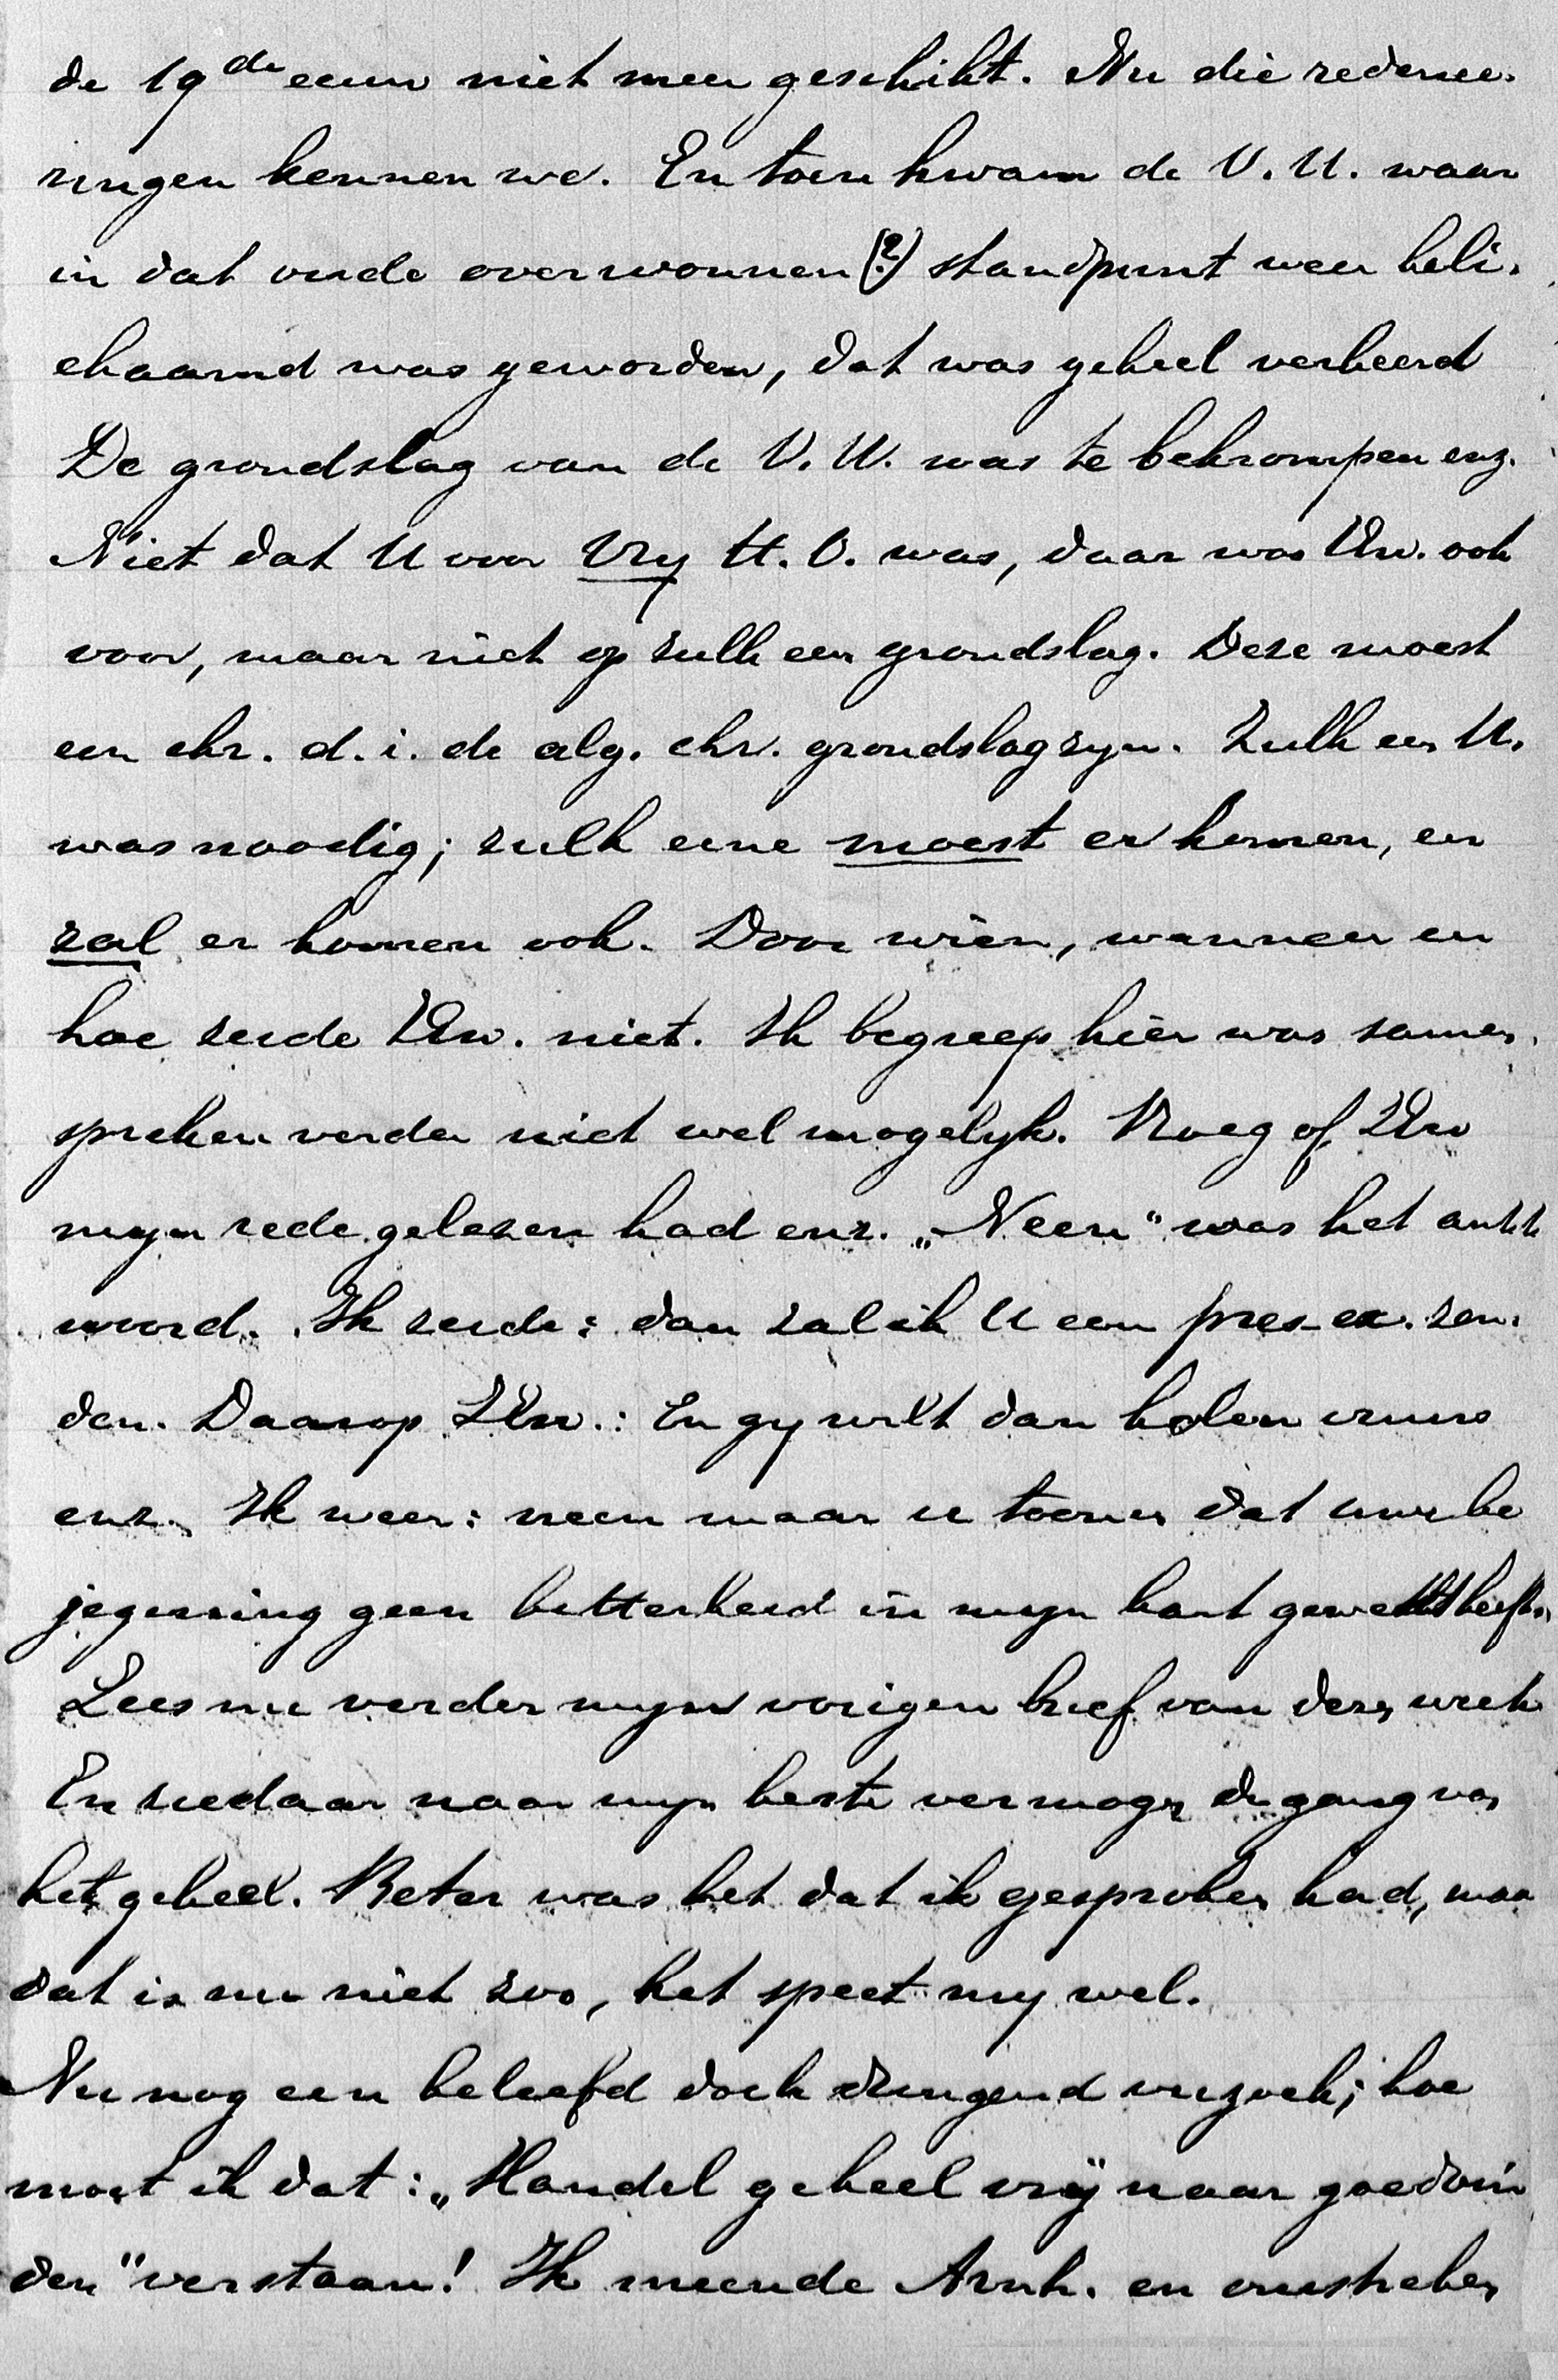 de 19de eeuw niet meer geschikt. Nu die redenee-
ringen kennen we. En toen kwam de V.U. waar
in dat oude overwonnen (?) standpunt weer beli-
chaamd was geworden, dat was geheel verkeerd
De grondslag van de V.U. was te bekrompen enz.
Niet dat U voor Vry H.O. was, daar was ZEw. ook
voor, maar niet op zulk een grondslag. Deze moest
een chr. d.i. de alg. chr. grondslag zyn. Zulk een U.
was noodig; zulk eene moest er komen, en
zal er komen ook. Door wien, wanneer en
hoe zeide ZEw. niet. Ik begreep hier was samen-
spreken verder niet wel mogelyk. Vroeg of ZEw
myn rede gelezen had enz. „Neen" was het antt
woord. Ik zeide: dan zal ik U een pres-ex. zen-
den. Daarop ZEw.: En gy wilt dan kolen vuurs
enz. Ik weer: neen maar u toonen dat uwe be
jegening geen bitterheid in myn hart gewekt heeft.
Lees nu verder myn vorigen brief van deze week
En ziedaar naar myn beste vermogen de gang van
het geheel. Beter was het dat ik gesproken had, maar
dat is nu niet zoo, het speet my wel.
Nu nog een beleefd doch dringend verzoek; hoe
moet ik dat: „Handel geheel vrij naar goedvin
den" verstaan! Ik meende Arnh. en omstreken